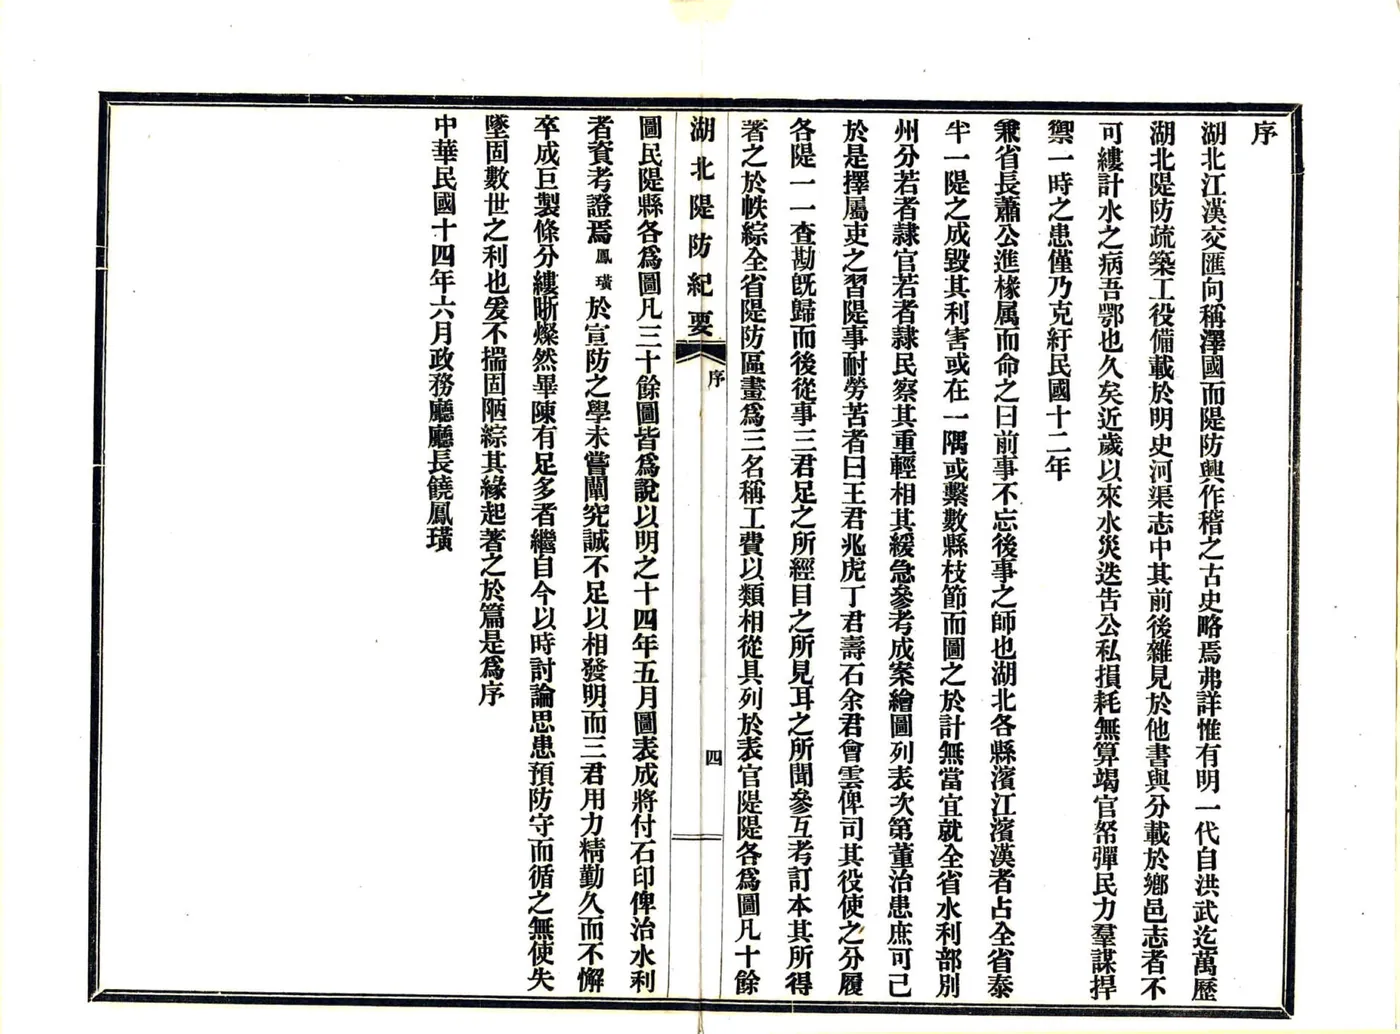 序
湖北江漢交匯向稱澤國而隄防興作稽之古史略焉弗詳惟有明一代自洪武迄萬歷
湖北隄防疏築工役備載於明史河渠志中其前後雜見於他書與分載於鄉邑志者不
可縷計水之病吾鄂也久矣近歲以來水災迭告公私損耗無算竭官帑殫民力羣謀捍
禦一時之患僅乃克紓民國十二年
兼省長蕭公進椽属而命之曰前事不忘後事之師也湖北各縣濱江濱漢者占全省泰
半一隄之成毀其利害或在一隅或繫數縣枝節而圖之於計無當宜就全省水利部別
州分若者隸官若者隸民察其重輕相其緩急參考成案繪圖列表次第董治患庶可已
於是擇屬吏之習隄事耐勞苦者曰王君兆虎丁君壽石余君會雲俾司其役使之分履
各隄一一查勘既歸而後從事三君足之所經目之所見耳之所聞參互考訂本其所得
著之於帙綜全省隄防區畫為三名稱工費以類相從具列於表官隄隄各為圖凡十餘
湖北隄防紀要
序
四
圖民隄縣各為圖凡三十餘圖皆為說以明之十四年五月圖表成將付石印俾治水利
者資考證焉鳳璜於宣防之學未嘗闡究誠不足以相發明而三君用力精勤久而不懈
卒成巨製條分縷晣燦然畢陳有足多者繼自今以時討論思患預防守而循之無使失
墜固數世之利也爰不揣固陋綜其緣起著之於篇是為序
中華民國十四年六月政務廳廳長饒鳳璜